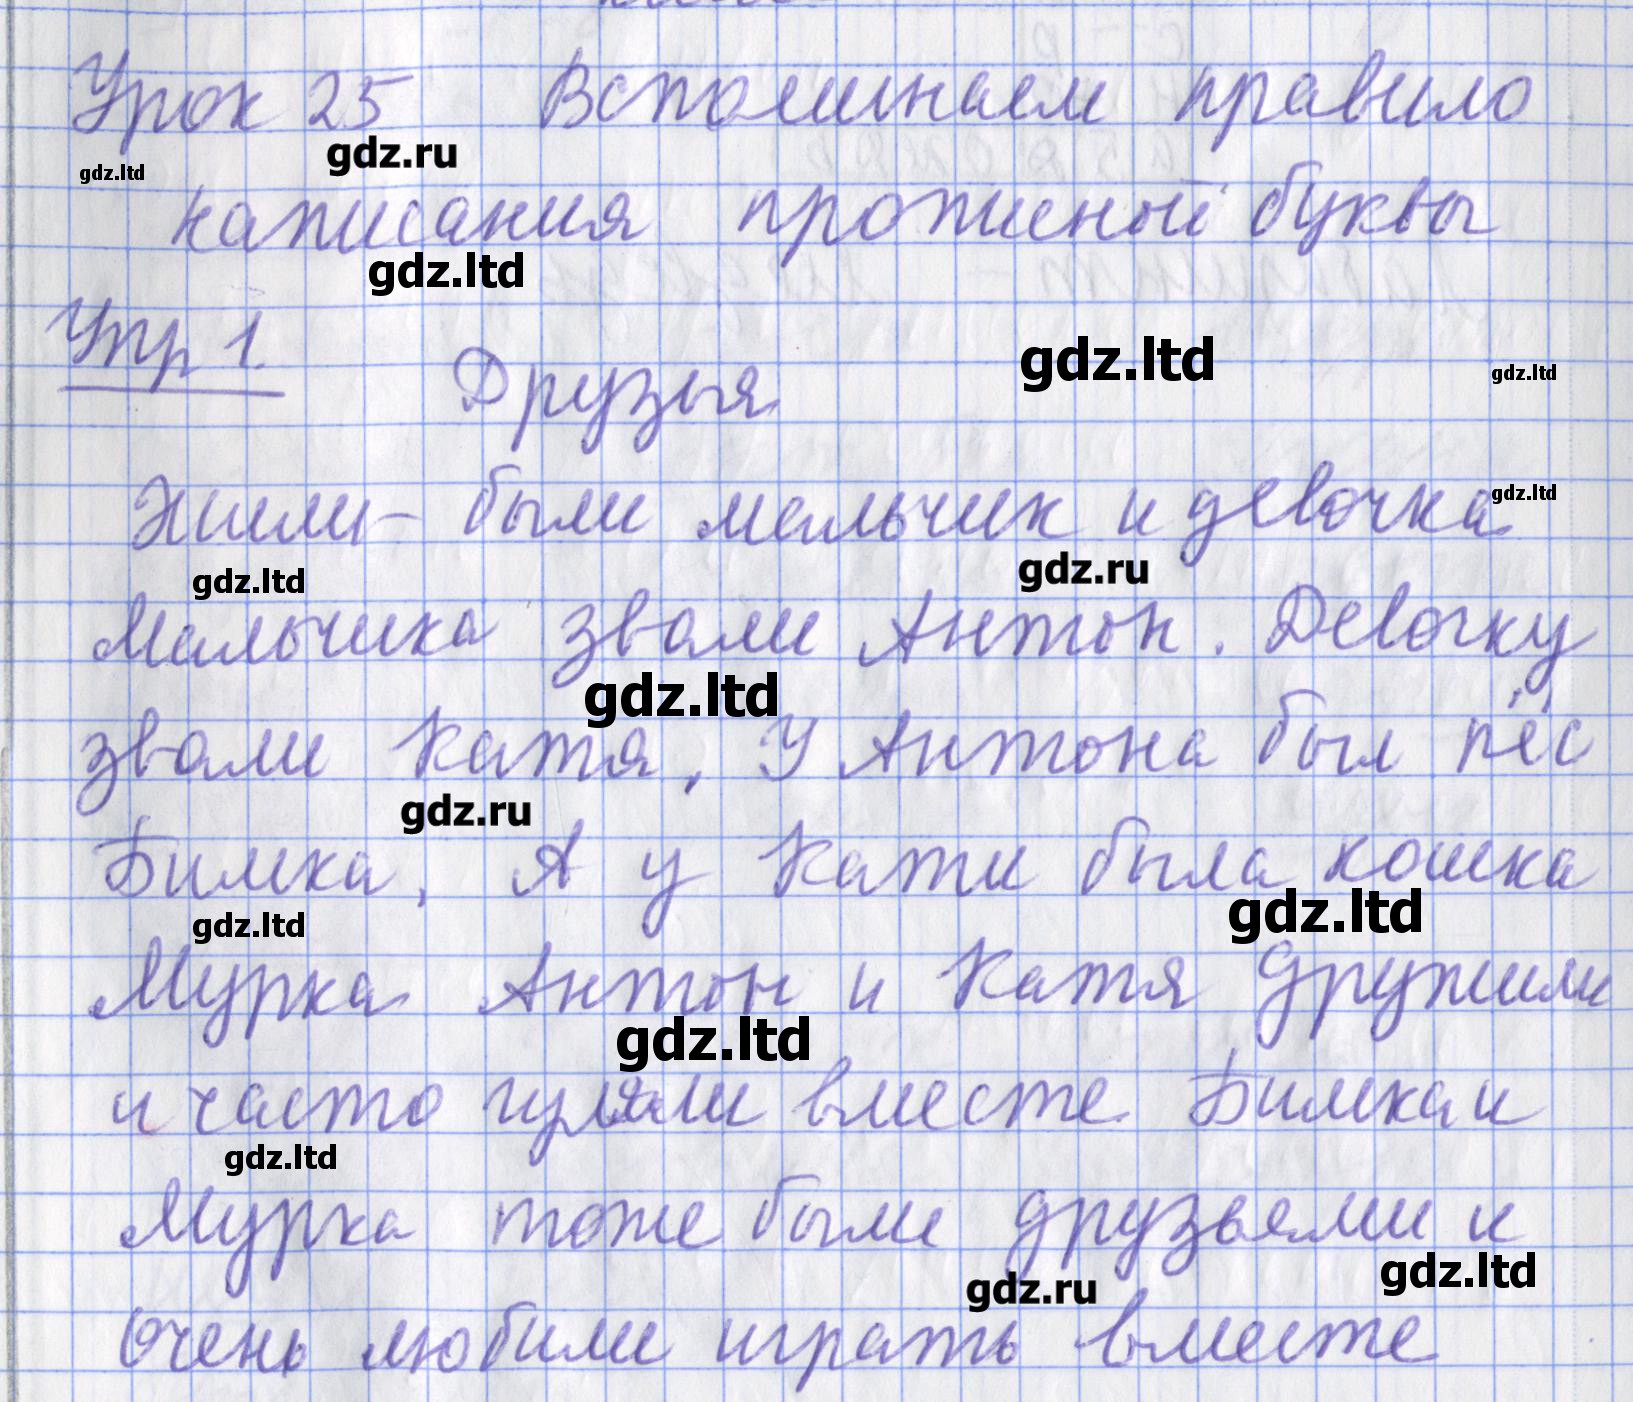 Урок 25 Вспоминаем правило
gdz.ltd gdz.ru
написания прописной буквы
gdz.ltd
Упр 1.
Друзья
gdz.ltd gdz.ltd
Жили - были мальчик и девочка
gdz.ltd
gdz.ltd gdz.ru
Мальчика звали Антон. Девочку
gdz.ltd
звали Катя. У Антона был пёс
gdz.ru
Бимка, А у Кати была кошка
gdz.ltd gdz.ltd
Мурка Антон и Катя дружили
gdz.ltd
и часто гуляли вместе. Бимка и
gdz.ltd
Мурка тоже были друзьями и
gdz.ru gdz.ltd
очень любили играть вместе